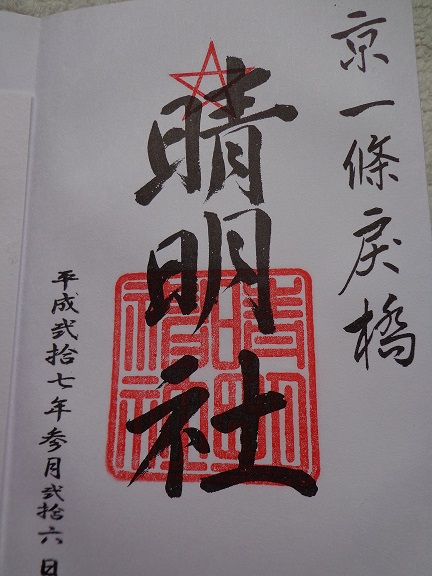 京一條戻橋
晴明社
平成弐拾七年参月弐拾六日